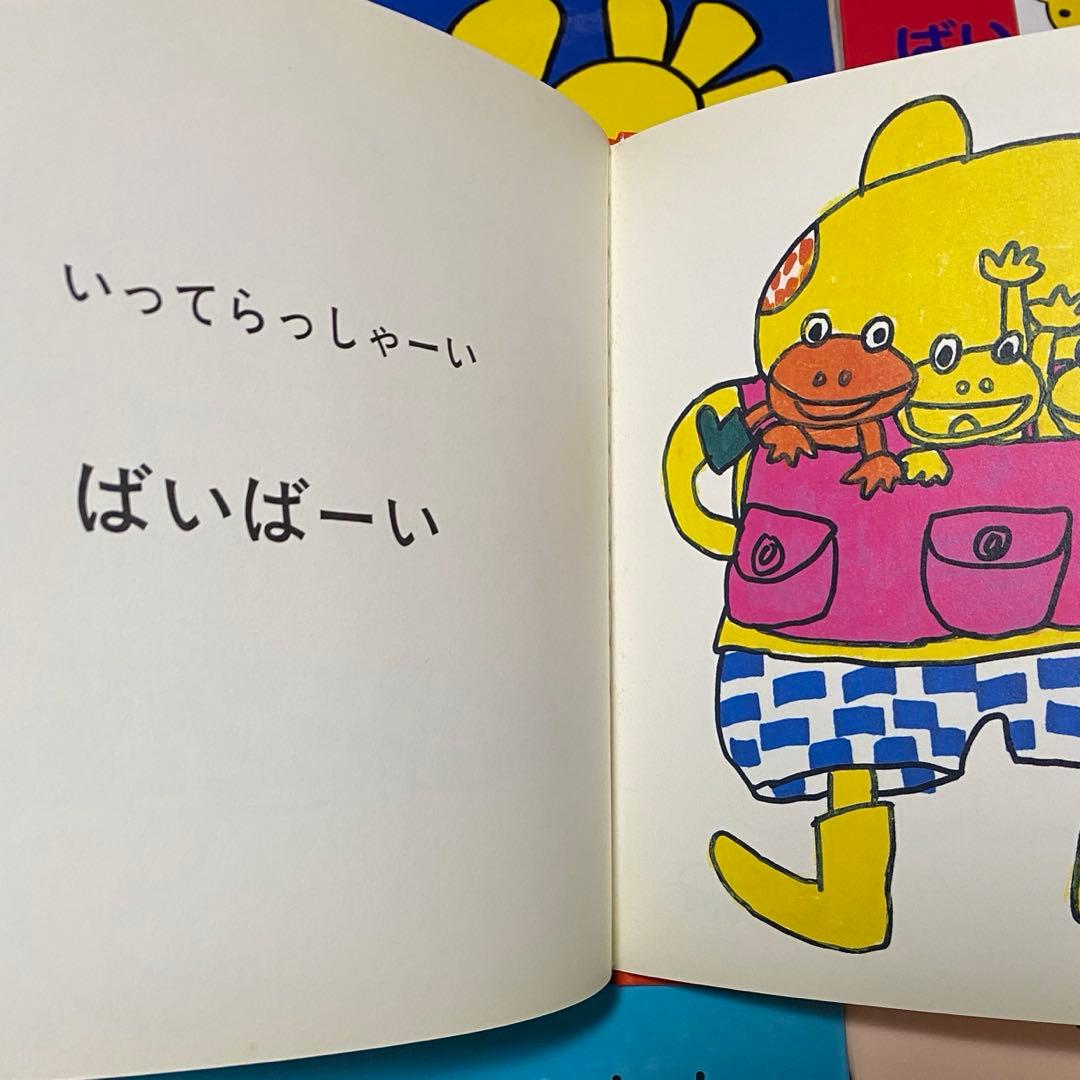 ばい
いってらっしゃーい
ばいばーい